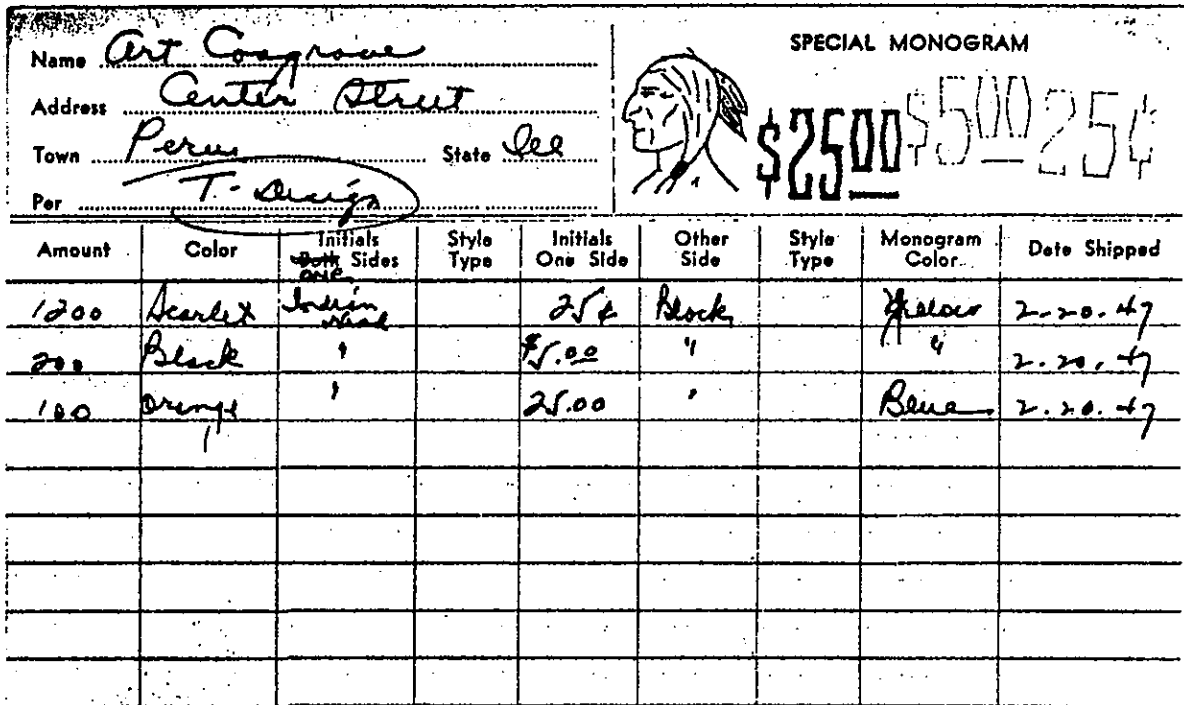 Name Art Cosgrove
Address Center Street
Town Peru State Ill
Per T- Design
SPECIAL MONOGRAM
$25 00 $5 00 25¢
Amount Color Initials Both ONE Sides Style Type Initials One Side Other Side Style Type Monogram Color Date Shipped
1200 Scarlet Indian Head 25¢ Block Yellow 2-20-47
200 Black " $5.00 " " 2-20-47
100 Orange " 25.00 " Blue 2-20-47